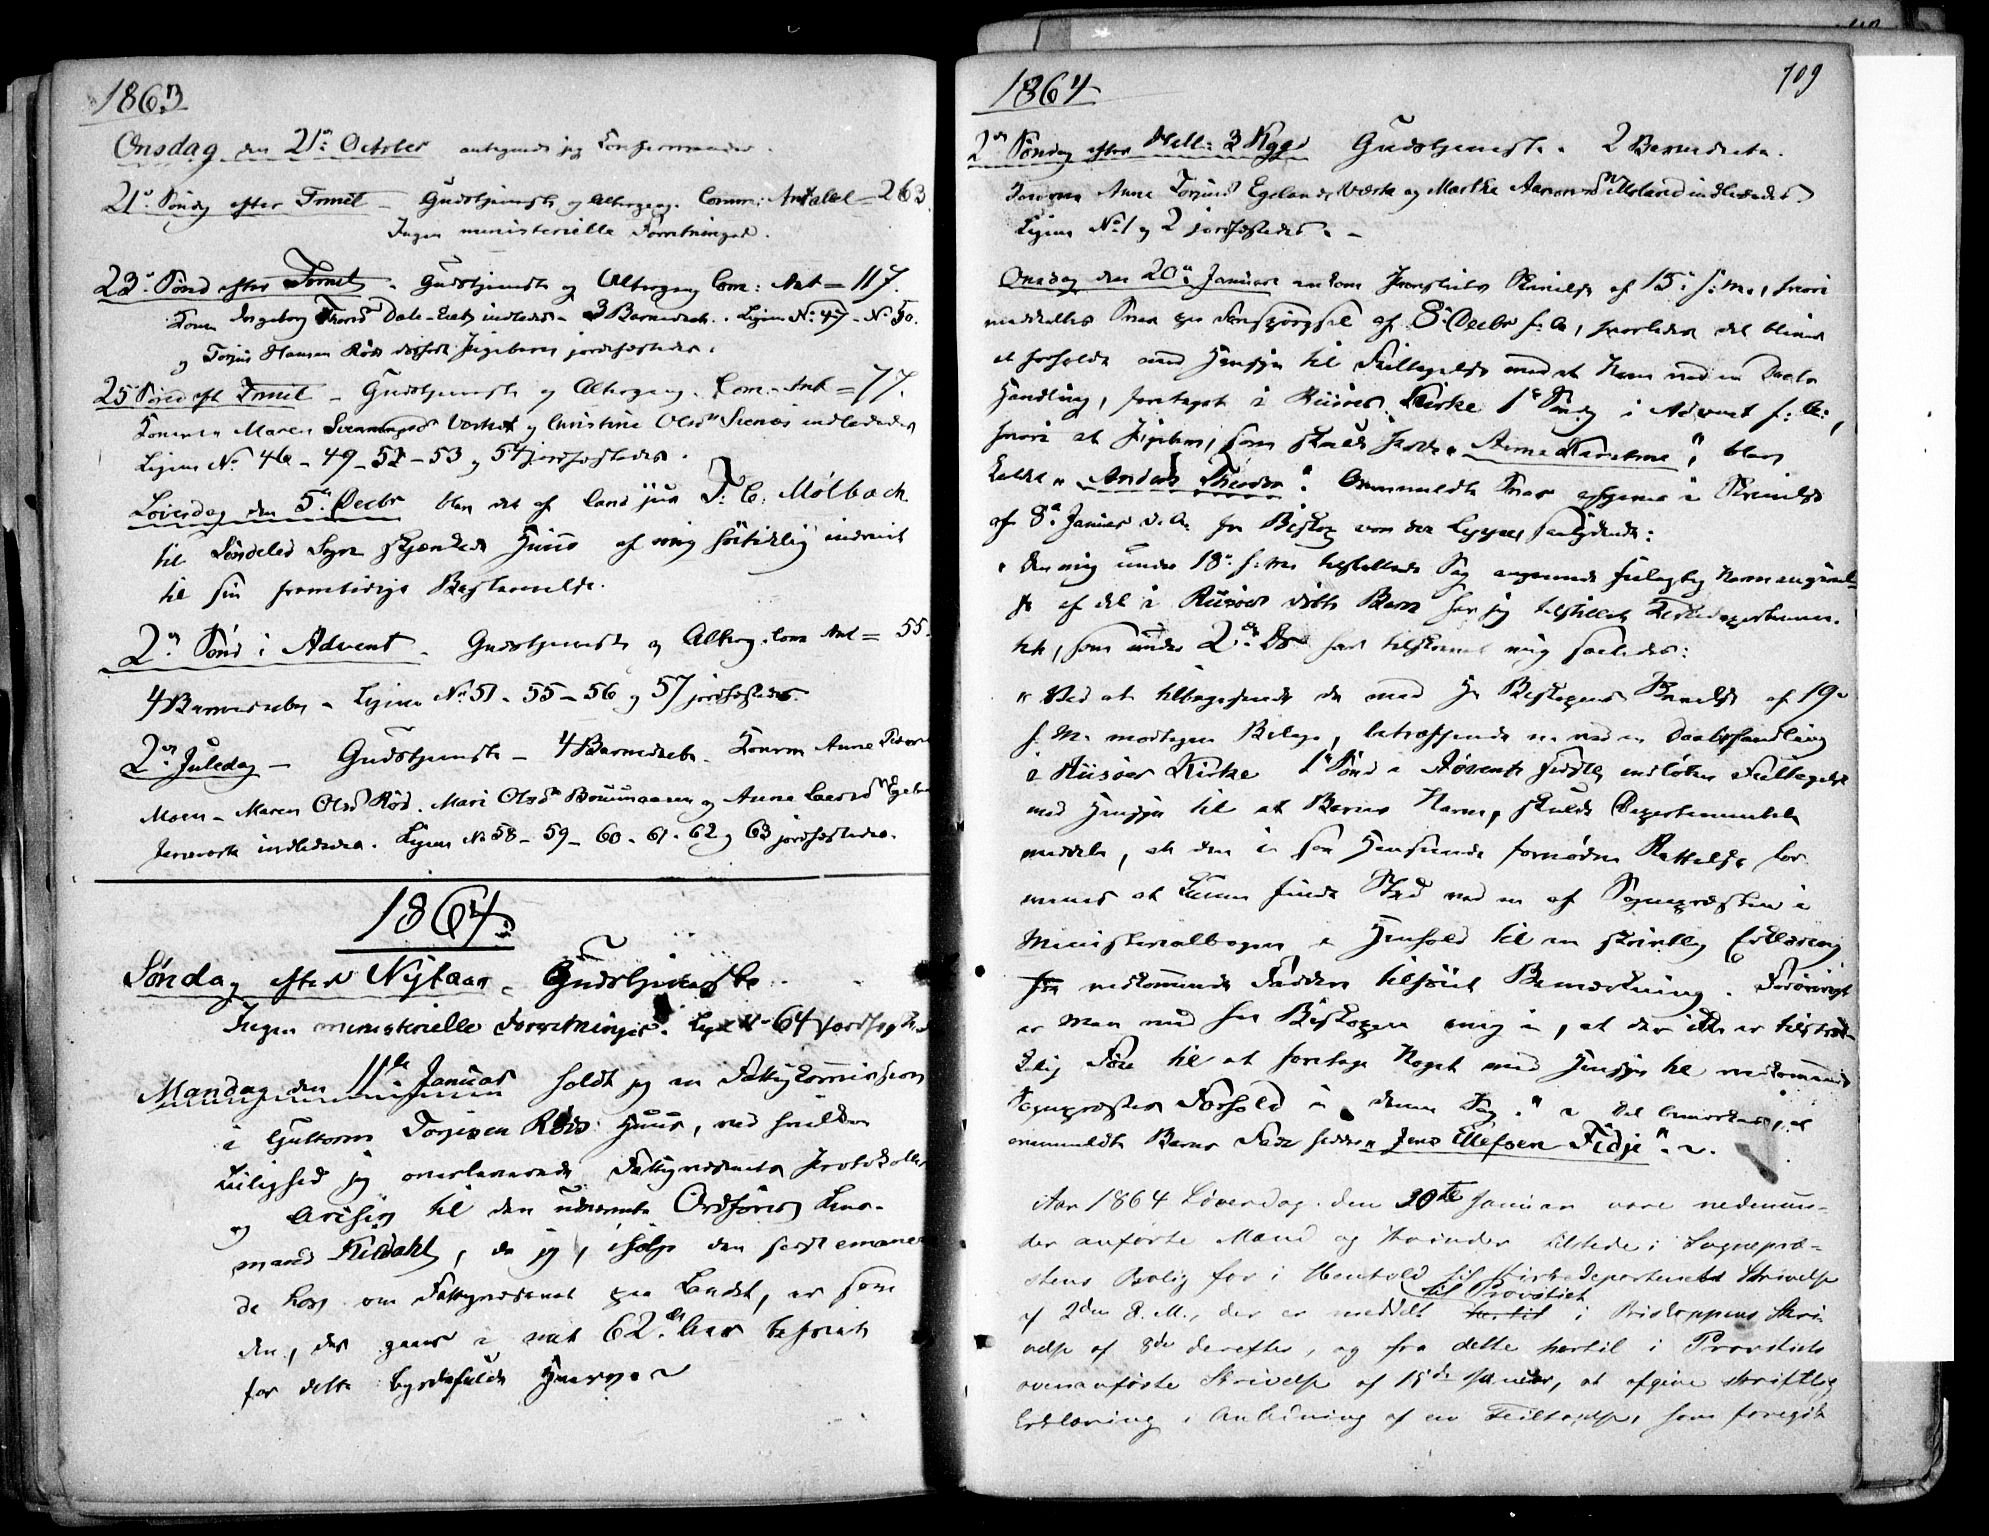 1863
Onsdag den 21de October antegnede jeg Confirmander.
21de Sønd. efter Trinit. – Gudstjeneste og Altergang. Comm: Antallet = 263.
Ingen ministerielle Forretninger.
23de Sønd efter Trinit. – Gudstjeneste og Altergang Com: Ant = 117.
Konen Ingeborg Dale-Eiet indledet – 3 Barnedaab. Ligene No 47 – No 50.
og Torjus Hansen Røds jordfæstedes.
25de Sønd eft Trinit – Gudstjeneste og Altergang. Com. Ant = 77.
Konerne Maren og Christine Olsdr indlededes
Ligene No 46 – 49 – 52 – 53 og 54 jordfæstedes.
Løverdag den 5te Decbr blev det af Landhr T. C. Mølbach
til Søndeled Sogn skjænkede Huus af mig høitidelig indviet
til sin fremtidige Bestemmelse.
2den Sønd i Advent – Gudstjeneste og Alterg. Com Ant = 55.
4 Barnedaab – Ligene No 51 – 55 – 56 og 57 jordfæstedes.
2den Juledag – Gudstjeneste – 4 Barnedaab. Konerne Anne
Moen – Maren Olsd Rød. Mari Olsdr og Anne
indlededes. Ligene No 58 – 59 – 60 – 61 – 62 og 63 jordfæstedes.
1864
Søndag efter Nytaar – Gudstjeneste
Ingen ministerielle Forretninger. Lig No 64
Mandag den 11te Januar holdt jeg en Fattigkommission
i Guttorm Torjesen Røds Huus, ved hvilken
Leilighed jeg overleverede Fattigvæsenets Protokoller
og Archiv til den udnævnte Ordfører
mand, da jeg, ifølge den sidst emanere
de Lov om Fattigvæsenet paa Landet, er som
den, der gaaer i mit 62de Aar befriet
for dette byrdefulde Hverv.
1864
709
2den Søndag efter Hell: 3 Kgr Gudstjeneste. 2 Barnedaab.
Konerne Anne Egeland og Marthe indlededes.
Ligene No 1 og 2 jordfæstedes. –
Onsdag den 20de Januar ankom Provstiets Skrivelse af 15de f: M., hvori
meddeltes Svar paa Forespørgsel af 8de Decbr f: A, hvorledes det bliver
at forholde med Hensyn til Feiltagelse med et Navn ved en Daabs
Handling, foretaget i Riisøer Kirke 1ste Sønd. i Advent f: A:,
hvori et Pigebarn, som skulde hedde „Anne Kathrine", blev
kaldet „Anders Theodor". Ommeldte Svar afgives i Skrivelse
af 8de Januar d. A: fra Biskop von der Lippe saalydende:
„Den mig under 18de f: M. tilstillede Sag angaaende feilagtig Navneangivel-
se af det i Riisøer døbte Barn har jeg tilstillet Kirkedepartemen-
tet, som under 2den Ds har tilskrevet mig saaledes:
„Ved at tilbagesende de med Hr Biskopens Skrivelse af 19de
f. M. modtagne Bilage, betræffende en ved en Daabshandling
i Riisøer Kirke 1ste Sønd i Advent sidstl. indløben Feiltagelse
med Hensyn til et Barns Navn, skulde Departementet
meddele, at den i saa Henseende fornødne Rettelse for-
menes at kunne finde Sted ved en af Sognepræsten i
Ministerialbogen i Henhold til en skriftlig Erklæring
fra vedkommende Faddere tilføiet Bemærkning. Forøvrigt
er Man med Hr Biskopen enig i, at der ikke er tilstræk-
kelig Føie til at foretage Noget med Hensyn til vedkommende
Sognepræstes Forhold i denne Sag." – Det bemærkes, at
ommeldte Barns Fader hedder „Jens Ellefsen Fidje". –
Aar 1864 Løverdag den 30te Januar vare nedenun-
der anførte Mænd og Kvinder tilstede i Sognepræ-
stens Bolig for i Henhold til Kirkedepartemts Skrivelse
af 2den d. M., der er meddelt hertil til Provstiet i Biskoppens Skri-
velse af 8de derefter, og fra dette hertil i Provstiets
ovenanførte Skrivelse af 15de Januar, at afgive skriftlig
Erklæring i Anledning af en Feiltagelse, som foregik